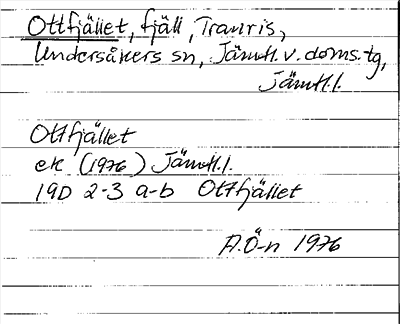 Ottfjället, fjäll, Tranris,
Undersåkers sn, Jämtl. v. doms. tg,
Jämtl. l.
Ottfjället
ek (1976) Jämtl. l.
19D 2-3 a-b Ottfjället
A.Ö-n 1976